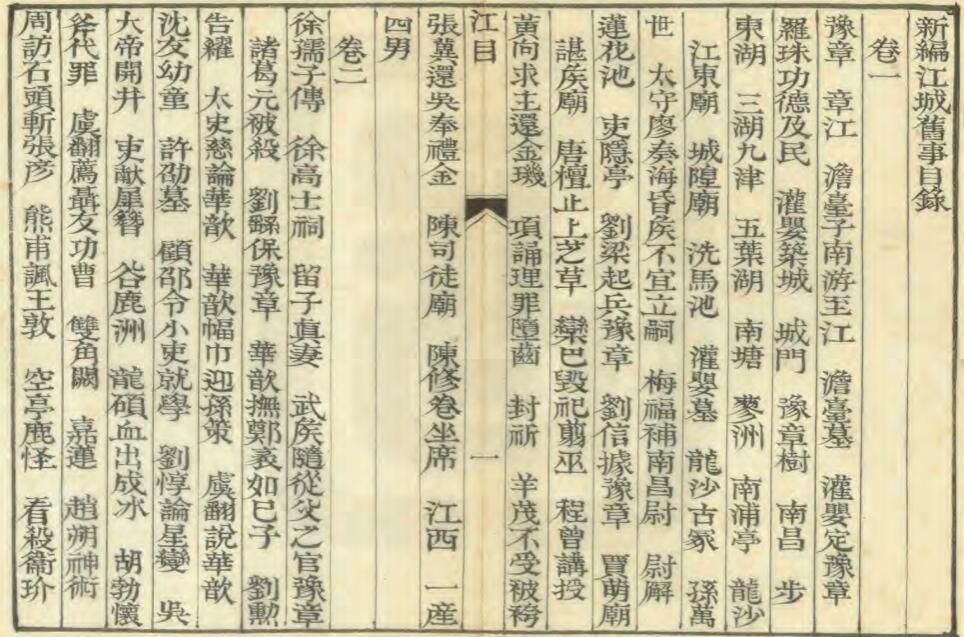 新編江城舊事目錄
卷一
豫章　章江　澹臺子南游至江　澹臺墓　灌嬰定豫章
羅珠功德及民　灌嬰築城　城門　豫章樹　南昌　步
東湖　三湖九津　五葉湖　南塘　蓼洲　南浦亭　龍沙
江東廟　城隍廟　洗馬池　灌嬰墓　龍沙古冢　孫萬
世　太守廖奏海昏矦不宜立嗣　梅福補南昌尉　尉廨
蓮花池　吏隱亭　劉梁起兵豫章　劉信據豫章　賈萌廟
諶矦廟　唐檀止上芝草　欒巴毀祀翦巫　程曾講授
黃向求主還金璣　項誦理罪墮齒　封祈　羊茂不受被袴
江目　一
張兾還吳奉禮金　陳司徒廟　陳修卷坐席　江西　一產
四男
卷二
徐孺子傳　徐高士祠　留子眞妻　武矦隨從父之官豫章
諸葛元被殺　劉繇保豫章　華歆撫鄭袤如已子　劉勳
告糴　太史慈論華歆　華歆幅巾迎孫策　虞翻說華歆
沈友幼童　許劭墓　顧邵令小吏就學　劉惇論星變　吳
大帝開井　吏獻犀簪　谷鹿洲　龍碩血出成冰　胡勃懷
斧代罪　虞翻薦聶友功曹　雙角闕　嘉蓮　趙朔神術
周訪石頭斬張彥　熊甫諷王敦　空亭鹿怪　看殺衞玠